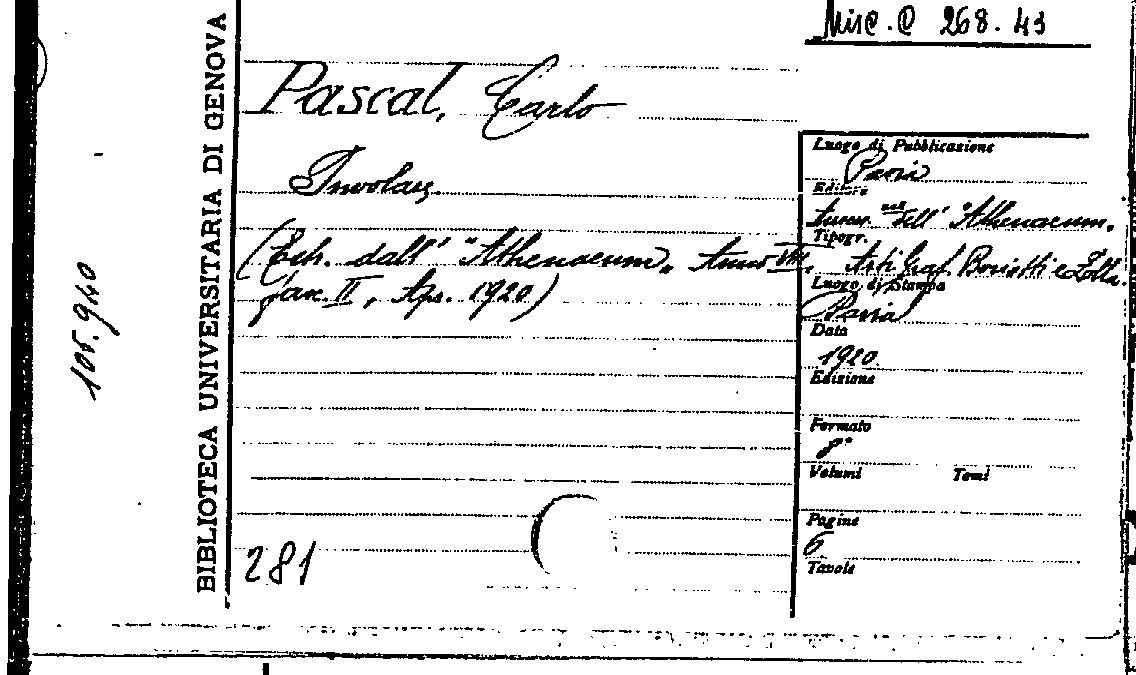 Misc. C 268. 43
Pascal, Carlo
(Estr. dall' "Athenaeum„ Anno VIII,
fasc. II, Apr. 1920)
281
BIBLIOTECA UNIVERSITARIA DI GENOVA
105.940
Luogo di Pubblicazione
Pavia
Editore
dell' "Athenaeum„
Tipogr.
Arti Graf.
Luogo di Stampa
Pavia
Data
1920
Edizione
Formato
8°
Volumi Tomi
Pagine
6
Tavole